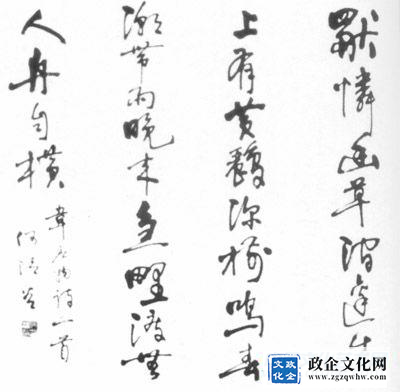 獨憐幽草澗邊生
上有黄鸝深樹鳴春
潮帶雨晚來急野渡無
人舟自横
韋應物詩一首
何清谷
政企文化
政企文化网
www.zgzqwhw.com